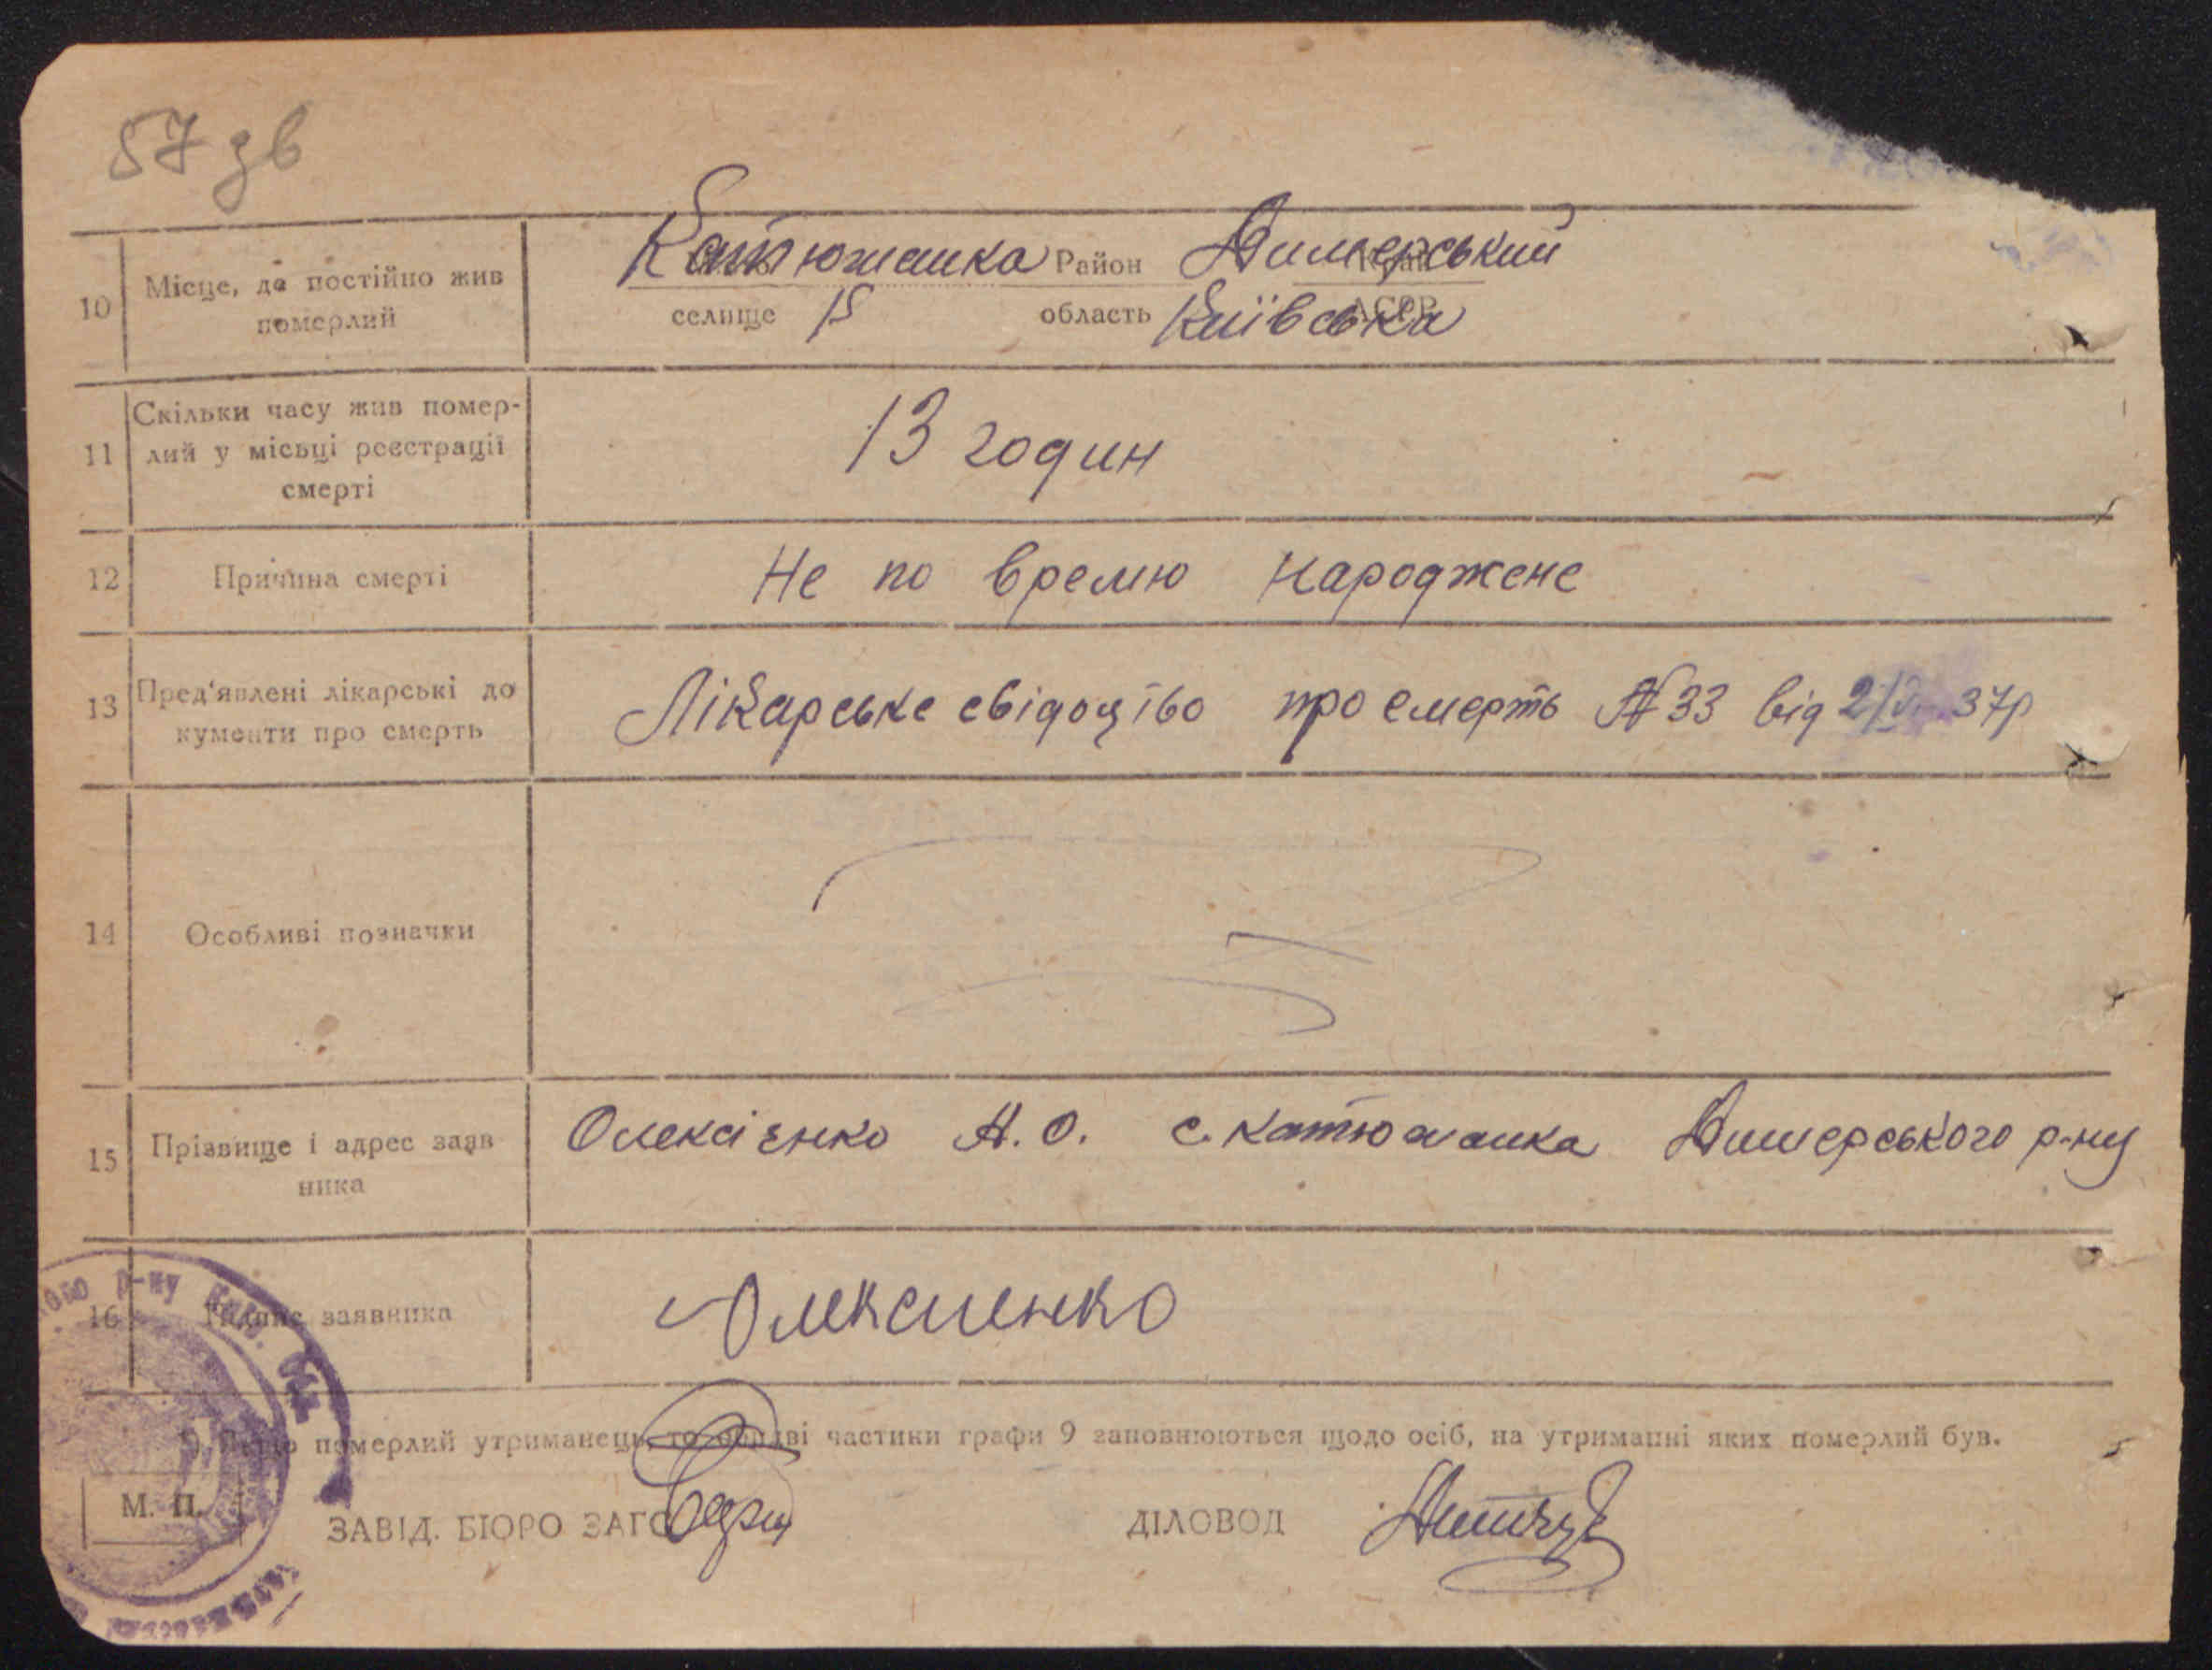 57 зв
10 Місце, де постійно жив померлий
Катюжанка Район Димерський
селище область Київська АСРР
11 Скільки часу жив помер-
лий у місьці реєстрації
смерті
13 годин
12 Причина смерті
Не по времю народжене
13 Пред'явлені лікарські до
кументи про смерть
Лікарське свідоцтво про смерть № 33 від 37р
14 Особливі позначки
15 Прізвище і адрес заяв
ника
Олексієнко А. О. с. Катюжанка Димерського р-ну
16 Підпис заявника
Олексиенко
р-ну Київ. Обл
Якщо померлий утриманець, то обидві частини графи 9 заповнюються щодо осіб, на утриманні яких померлий був.
М. П.
ЗАВІД. БЮРО ЗАГС
ДІЛОВОД